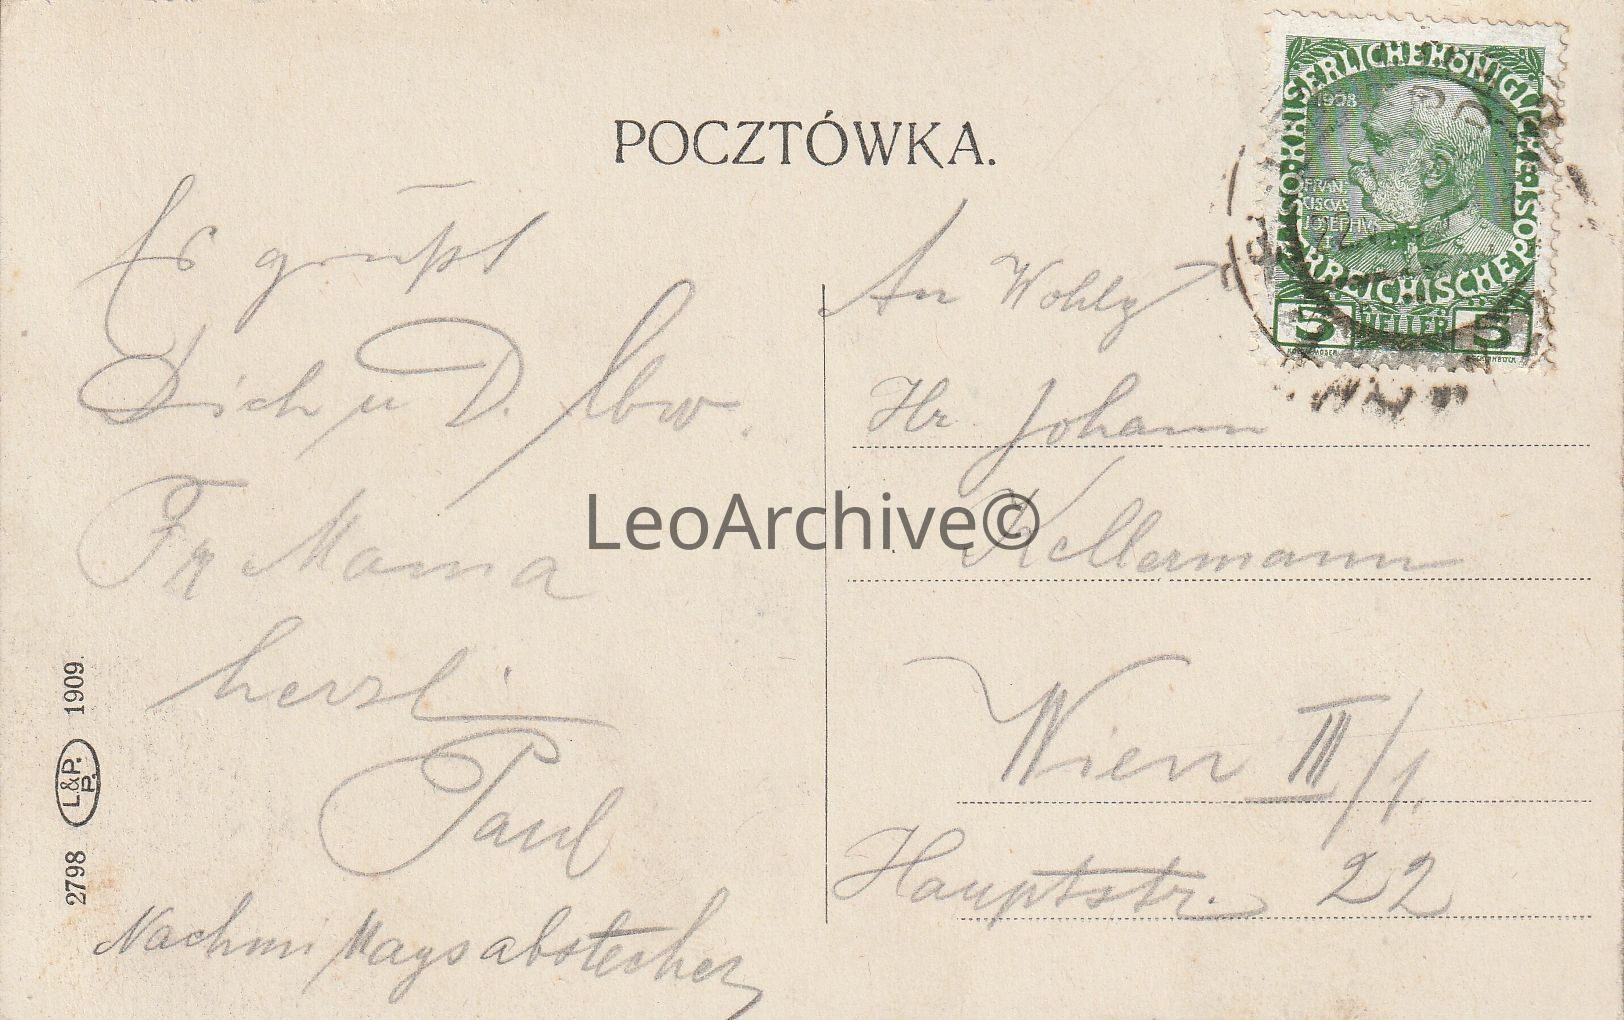 POCZTÓWKA.
Es grüßt
Dich u D. lbw.
Fr Mama
herzl.
Paul
Nachmittagsabstecher
An Wohlg
Hr. Johann
Kellermann
Wien III/1.
Hauptstr. 22
2798 L.&P. P. 1909.
KAISERLICHE KÖNIGLICHE
ÖSTERREICHISCHE POST
1908
FRAN
CISCVS
JOSEPH I
5 HELLER 5
LeoArchive©